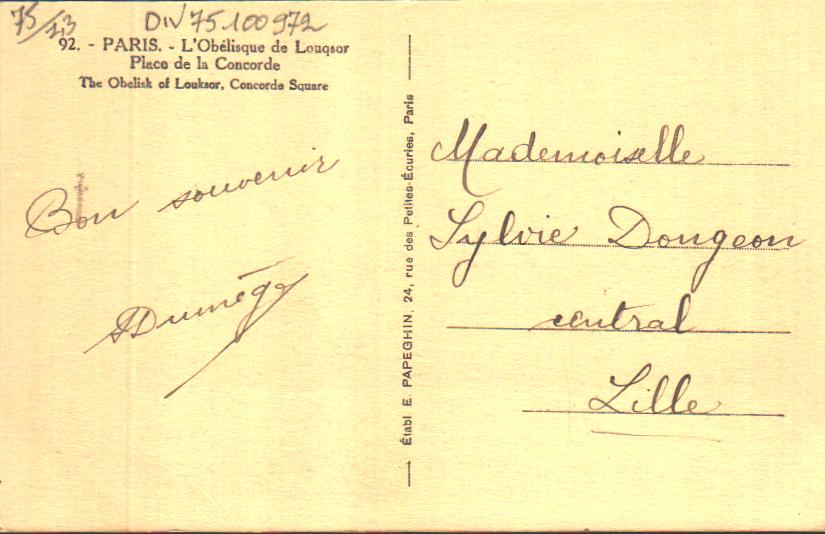 75/23
DIV 75.100972
92. - PARIS. - L'Obélisque de Louqsor
Place de la Concorde
The Obelisk of Louksor, Concorde Square
Bon souvenir
Établ E. PAPEGHIN, 24, rue des Petites-Écuries, Paris
Mademoiselle
Sylvie Dongeon
central
Lille